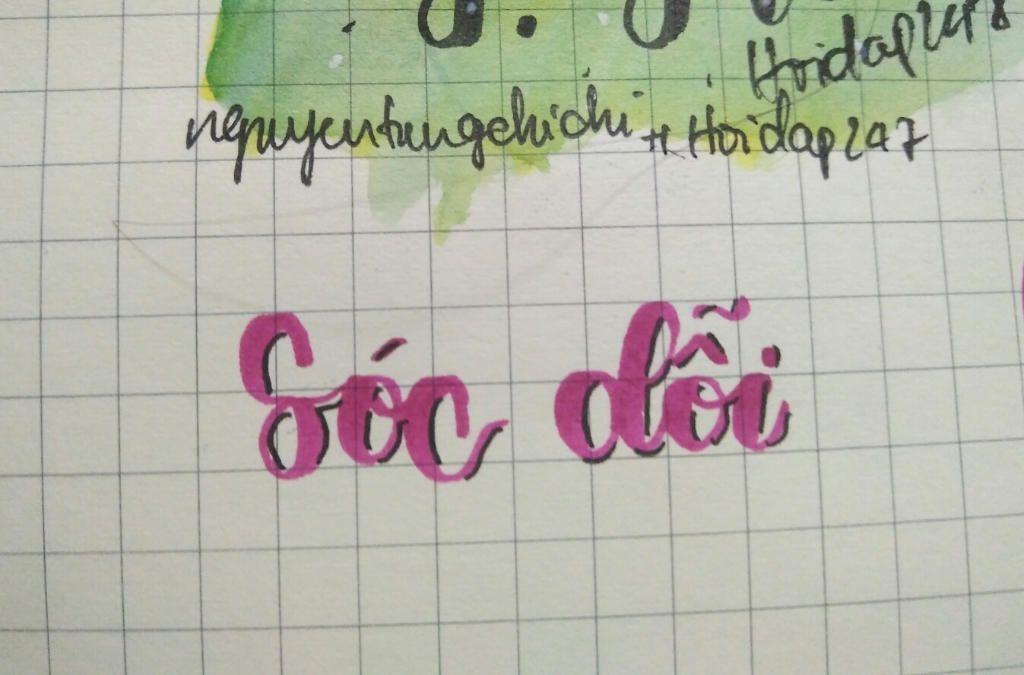 Hoidap247
nguyentungchichi + Hoidap247
Sóc dỗi